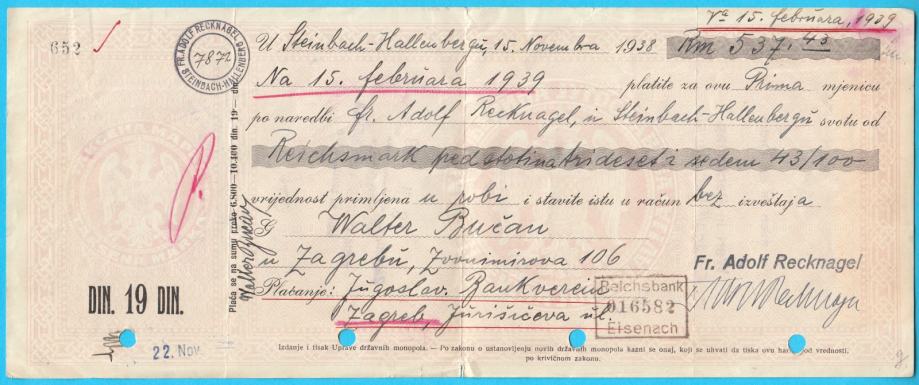 Va 15. februara, 1939
652
FR. ADOLF RECKNAGEL GEN.
STEINBACH-HALLENBERG
7872
U Steinbach-Hallenbergu, 15. Novembra 1938 Rm 537.43
Na 15. februara 1939 platite za ovu Prima mjenicu
po naredbi fr. Adolf Recknagel, u Steinbach-Hallenbergu svotu od
Reichsmark pedstotinatrideset i sedem 43/100
vrijednost primljena u robi i stavite istu u račun bez izveštaja
G Walter Bučan
u Zagrebu, Zvonimirova 106
Plaćanje: Jugoslav. Bankverein
Zagreb, Jurišićeva ul.
Plaća se na sumu preko 6.800—10.400 din. 19 din.
Walter Bučan
Fr. Adolf Recknagel
Reichsbank
916582
Eisenach
DIN. 19 DIN.
22. Nov
Izdanje i tisak Uprave državnih monopola. — Po zakonu o ustanovljenju novih državnih monopola kazni se onaj, koji se uhvati da tiska ovu hartiju pod vrednosti,
po krivičnom zakonu.